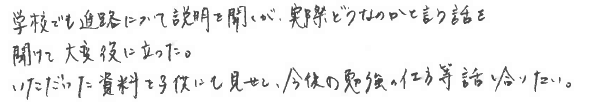 学校でも進路について説明を聞くが、実際どうなのかと言う話を
聞けて大変役に立った。
いただいた資料を子供にも見せ、今後の勉強の仕方等話し合いたい。